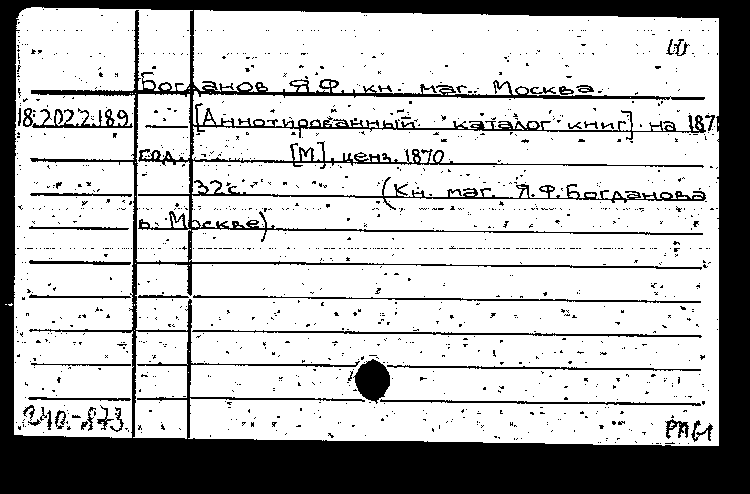 Богданов, Я.Ф., кн. маг. Москва.
18.202.2.189. [Аннотированный каталог книг] на 1871
год. [М.], ценз. 1870.
32 с. (Кн. маг. Я.Ф. Богданова
в Москве).
240-873